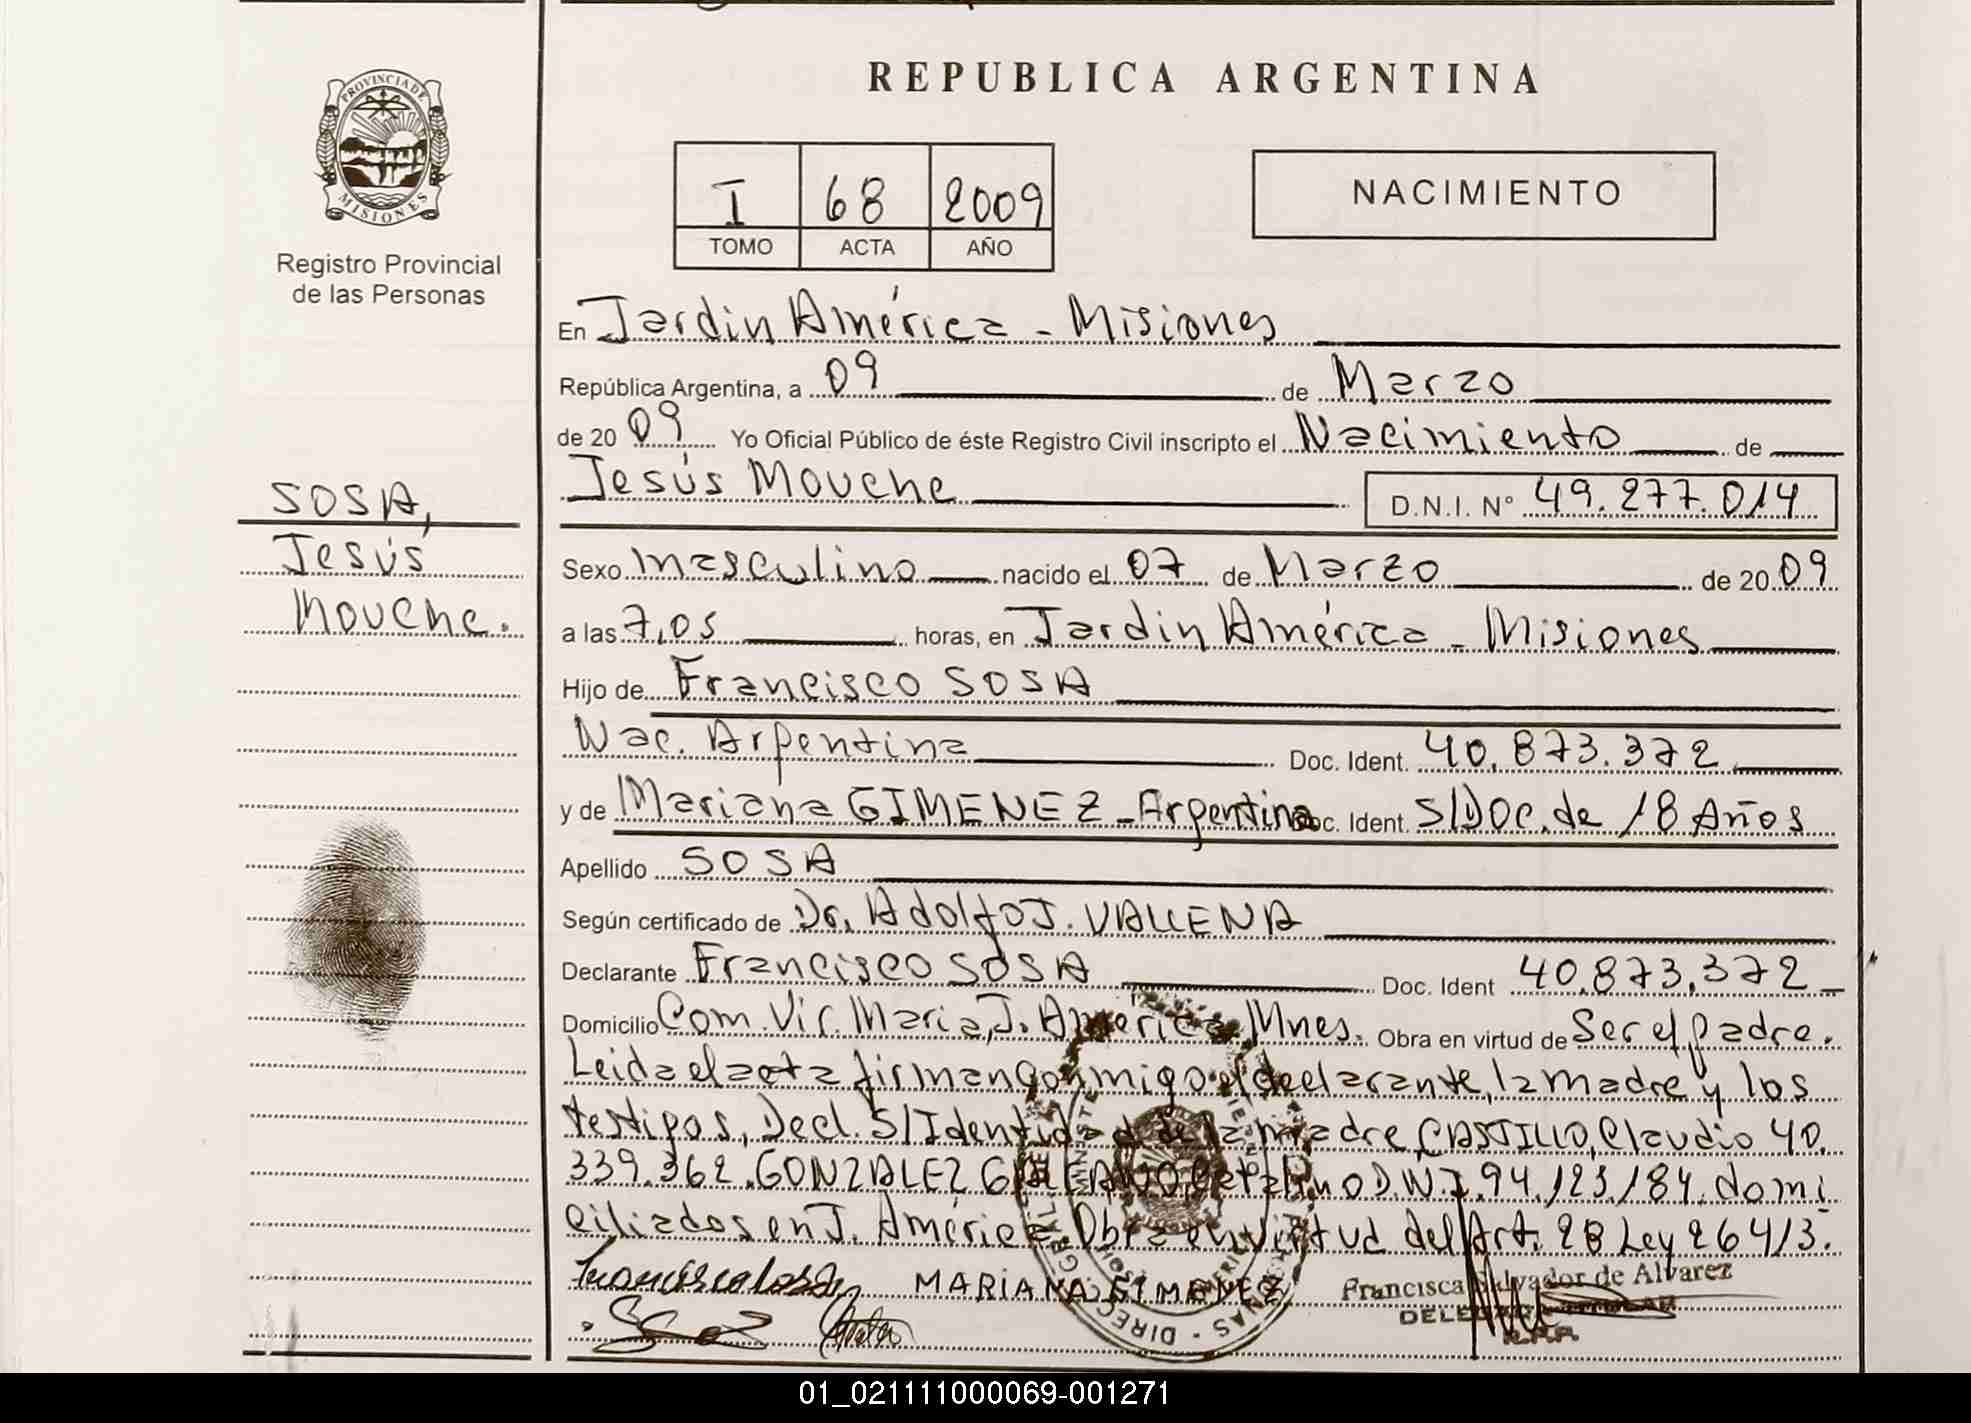 REPUBLICA ARGENTINA
PROVINCIA DE
MISIONES
Registro Provincial
de las Personas
I 68 2009
TOMO ACTA AÑO
NACIMIENTO
En Jardin América - Misiones
República Argentina, a 09 de Marzo
de 20 09 Yo Oficial Público de éste Registro Civil inscripto el Nacimiento de
Jesús Mouche D.N.I. N° 49.277.014
SOSA,
Jesús
Mouche.
Sexo masculino nacido el 07 de Marzo de 20 09
a las 7,05 horas, en Jardin América - Misiones
Hijo de Francisco SOSA
Nac. Argentina Doc. Ident. 40.873.372
y de Mariana GIMENEZ - Argentina Doc. Ident. S/Doc. de 18 Años
Apellido SOSA
Según certificado de Dr. Adolfo J. VALLENA
Declarante Francisco SOSA Doc. Ident 40.873.372
Domicilio Com. Vir. Maria, J. América Mnes. Obra en virtud de Ser el padre.
Leida el acta firman conmigo el declarante, la madre y los
testigos, Decl. S/Identidad de la madre CASTILLO, Claudio 40.
339.362. GONZALEZ D.N.I. 94.123184. domi
ciliados en J. América. Obra en virtud del Art. 28 Ley 26413.
MARIANA GIMENEZ
Francisca Salvador de Alvarez
DELEGADA TITULAR
R.P.P.
01_021111000069-001271